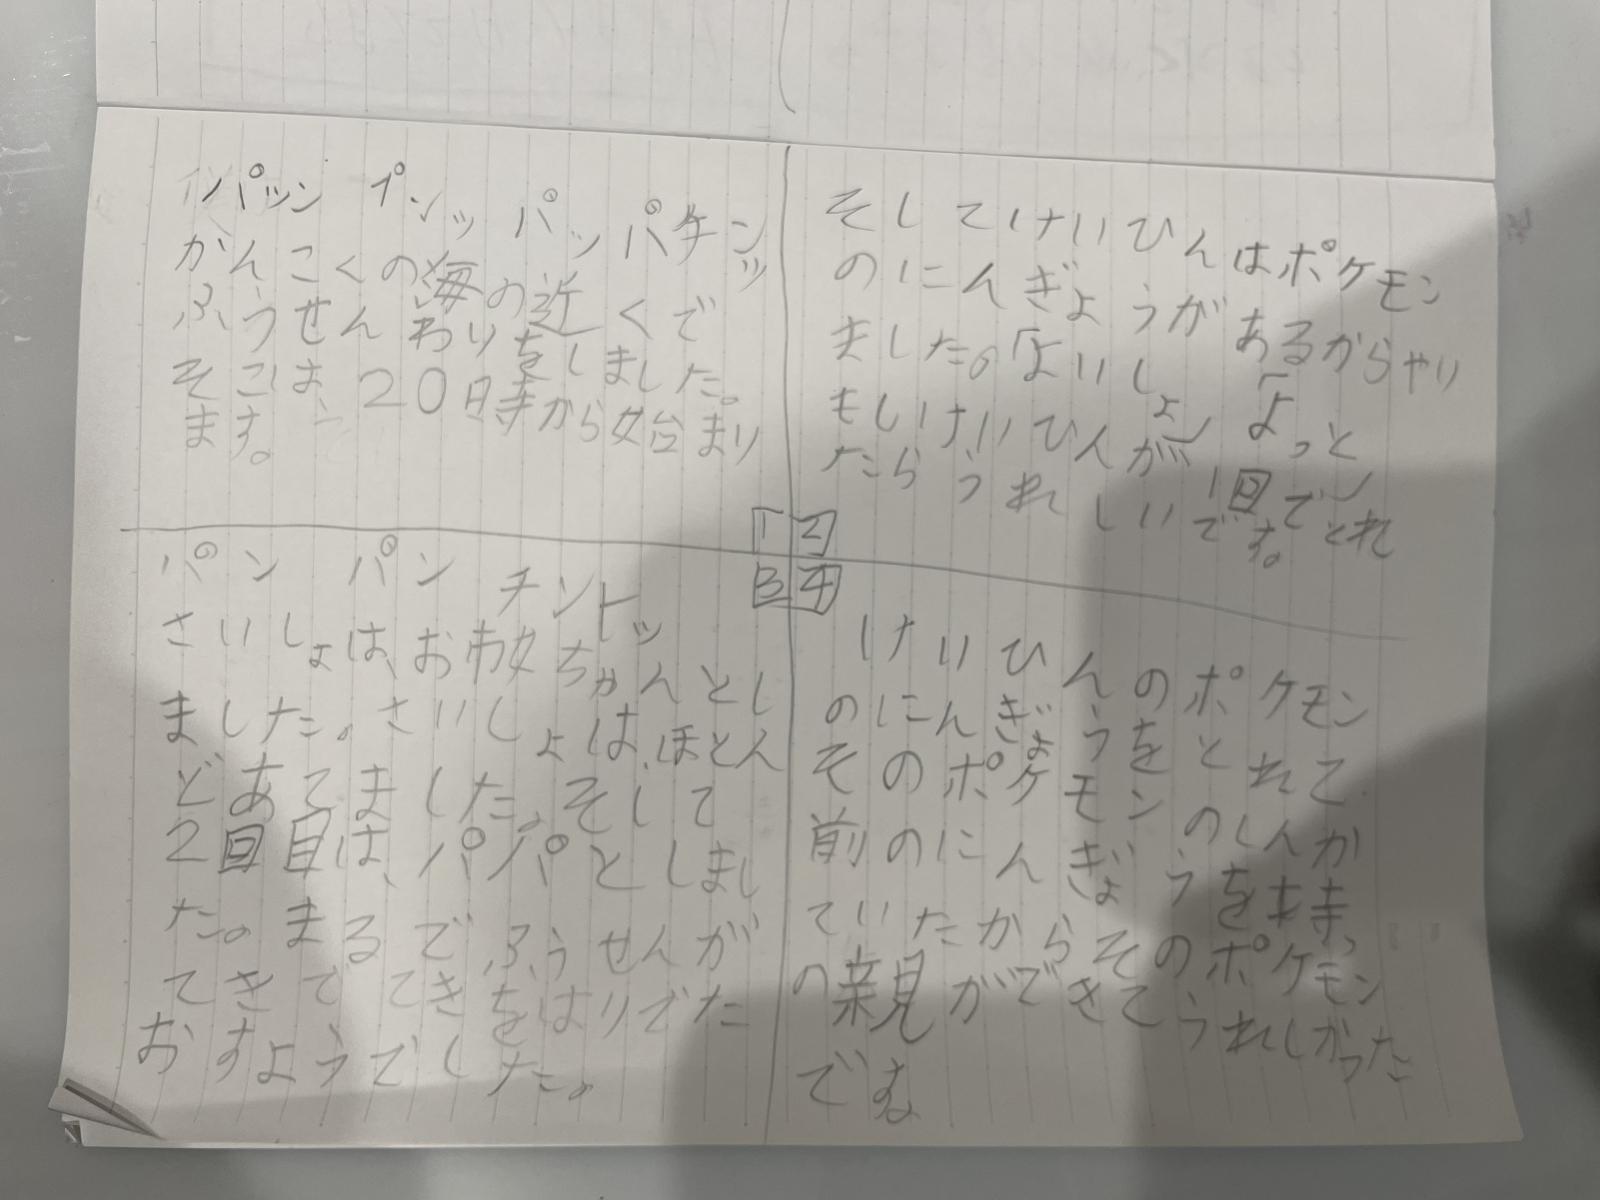 パッン プンッ パッパチンッ
かんこくの海の近くで
ふうせんわりをしました。
そこは、20時から始まり
ます。
そしてけいひんはポケモン
のにんぎょうがあるからやり
ました。「よいしょ」「よっと」
もしけいひんが1回でとれ
たらうれしいです。
1 2
3 4
パン パン チントッ
さいしょは、お姉ちゃんとし
ました。さいしょは、ほとん
どあてました。そして
2回目は、パパとしまし
た。まるでふうせんが
てきでてきをはりでた
おすようでした。
けいひんのポケモン
のにんぎょうをとれて
そのポケモンのしんか
前のにんぎょうをもっ
ていたからそのポケモン
の親見ができてうれしかった
です。